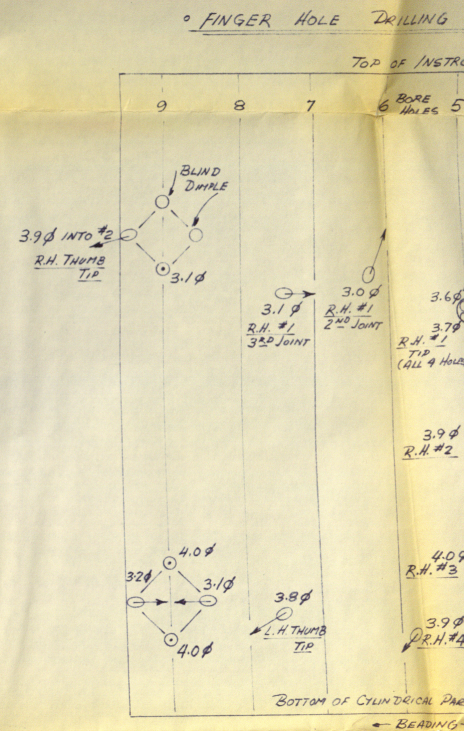 ° FINGER HOLE DRILLING
TOP OF INSTRU
9 8 7 6 BORE HOLES 5
BLIND
DIMPLE
3.9Ø INTO #2
R.H. THUMB
TIP
3.1Ø
3.1 Ø
R.H. #1
3RD JOINT
3.0 Ø
R.H. #1
2ND JOINT
3.6Ø
3.7Ø
R.H. #1
TIP
(ALL 4 HOLES
3.9 Ø
R.H. #2
4.0Ø
3.2Ø
3.1Ø
4.0Ø
3.8Ø
L.H. THUMB
TIP
4.0Ø
R.H. #3
3.9Ø
R.H. #4
BOTTOM OF CYLINDRICAL PAR
← BEADING